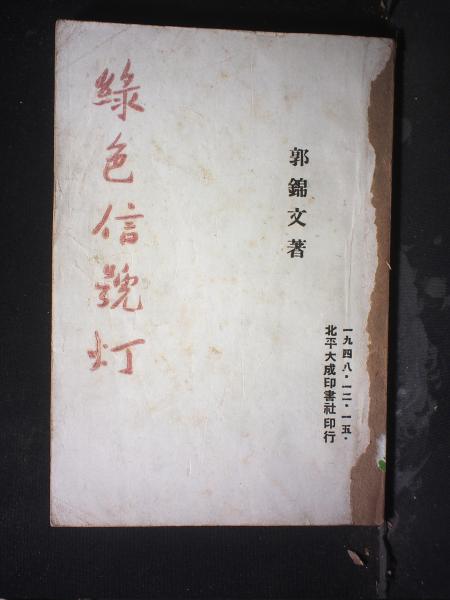 一九四八·一二·一五·
北平大成印書社印行
郭錦文著
綠色信號灯